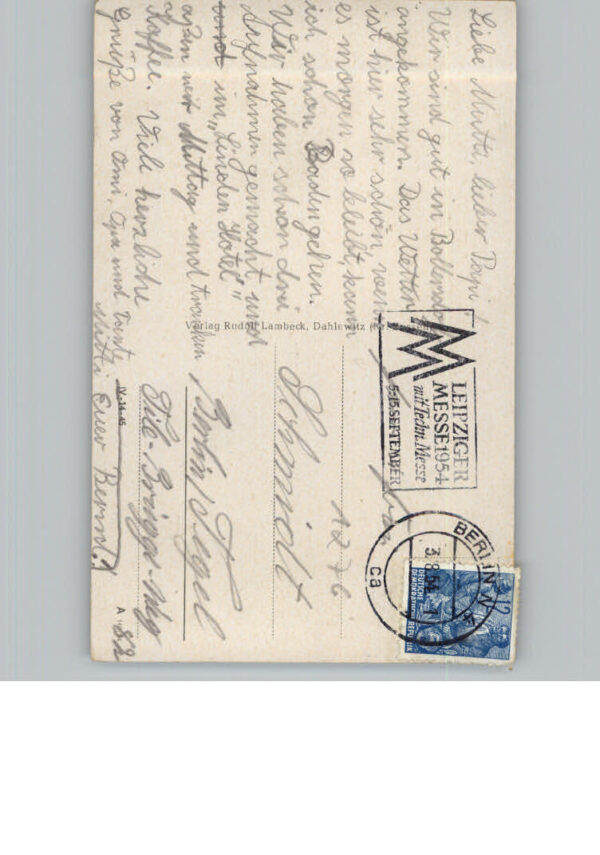 Liebe Mutti, lieber Papi!
Wir sind gut in
angekommen. Das Wetter
ist hier sehr schön, wenn
es morgen so bleibt, kann
ich schon Baden gehen.
Wir haben schon drei
Aufnahmen gemacht und
im „Linden Hotel"
aßen wir Mittag und tranken
Kaffee. Viele herzliche
Grüße von Omi, Opa und Tante
Euer Bernd!
Verlag Rudolf Lambeck, Dahlewitz
IV-14-45
A
LEIPZIGER
MESSE 1954
mit Techn. Messe
5-15. SEPTEMBER
BERLIN N 4
3.8.54
ca
DEUTSCHE
DEMOKRATISCHE
REPUBLIK
Schmidt
Berlin/Tegel
82